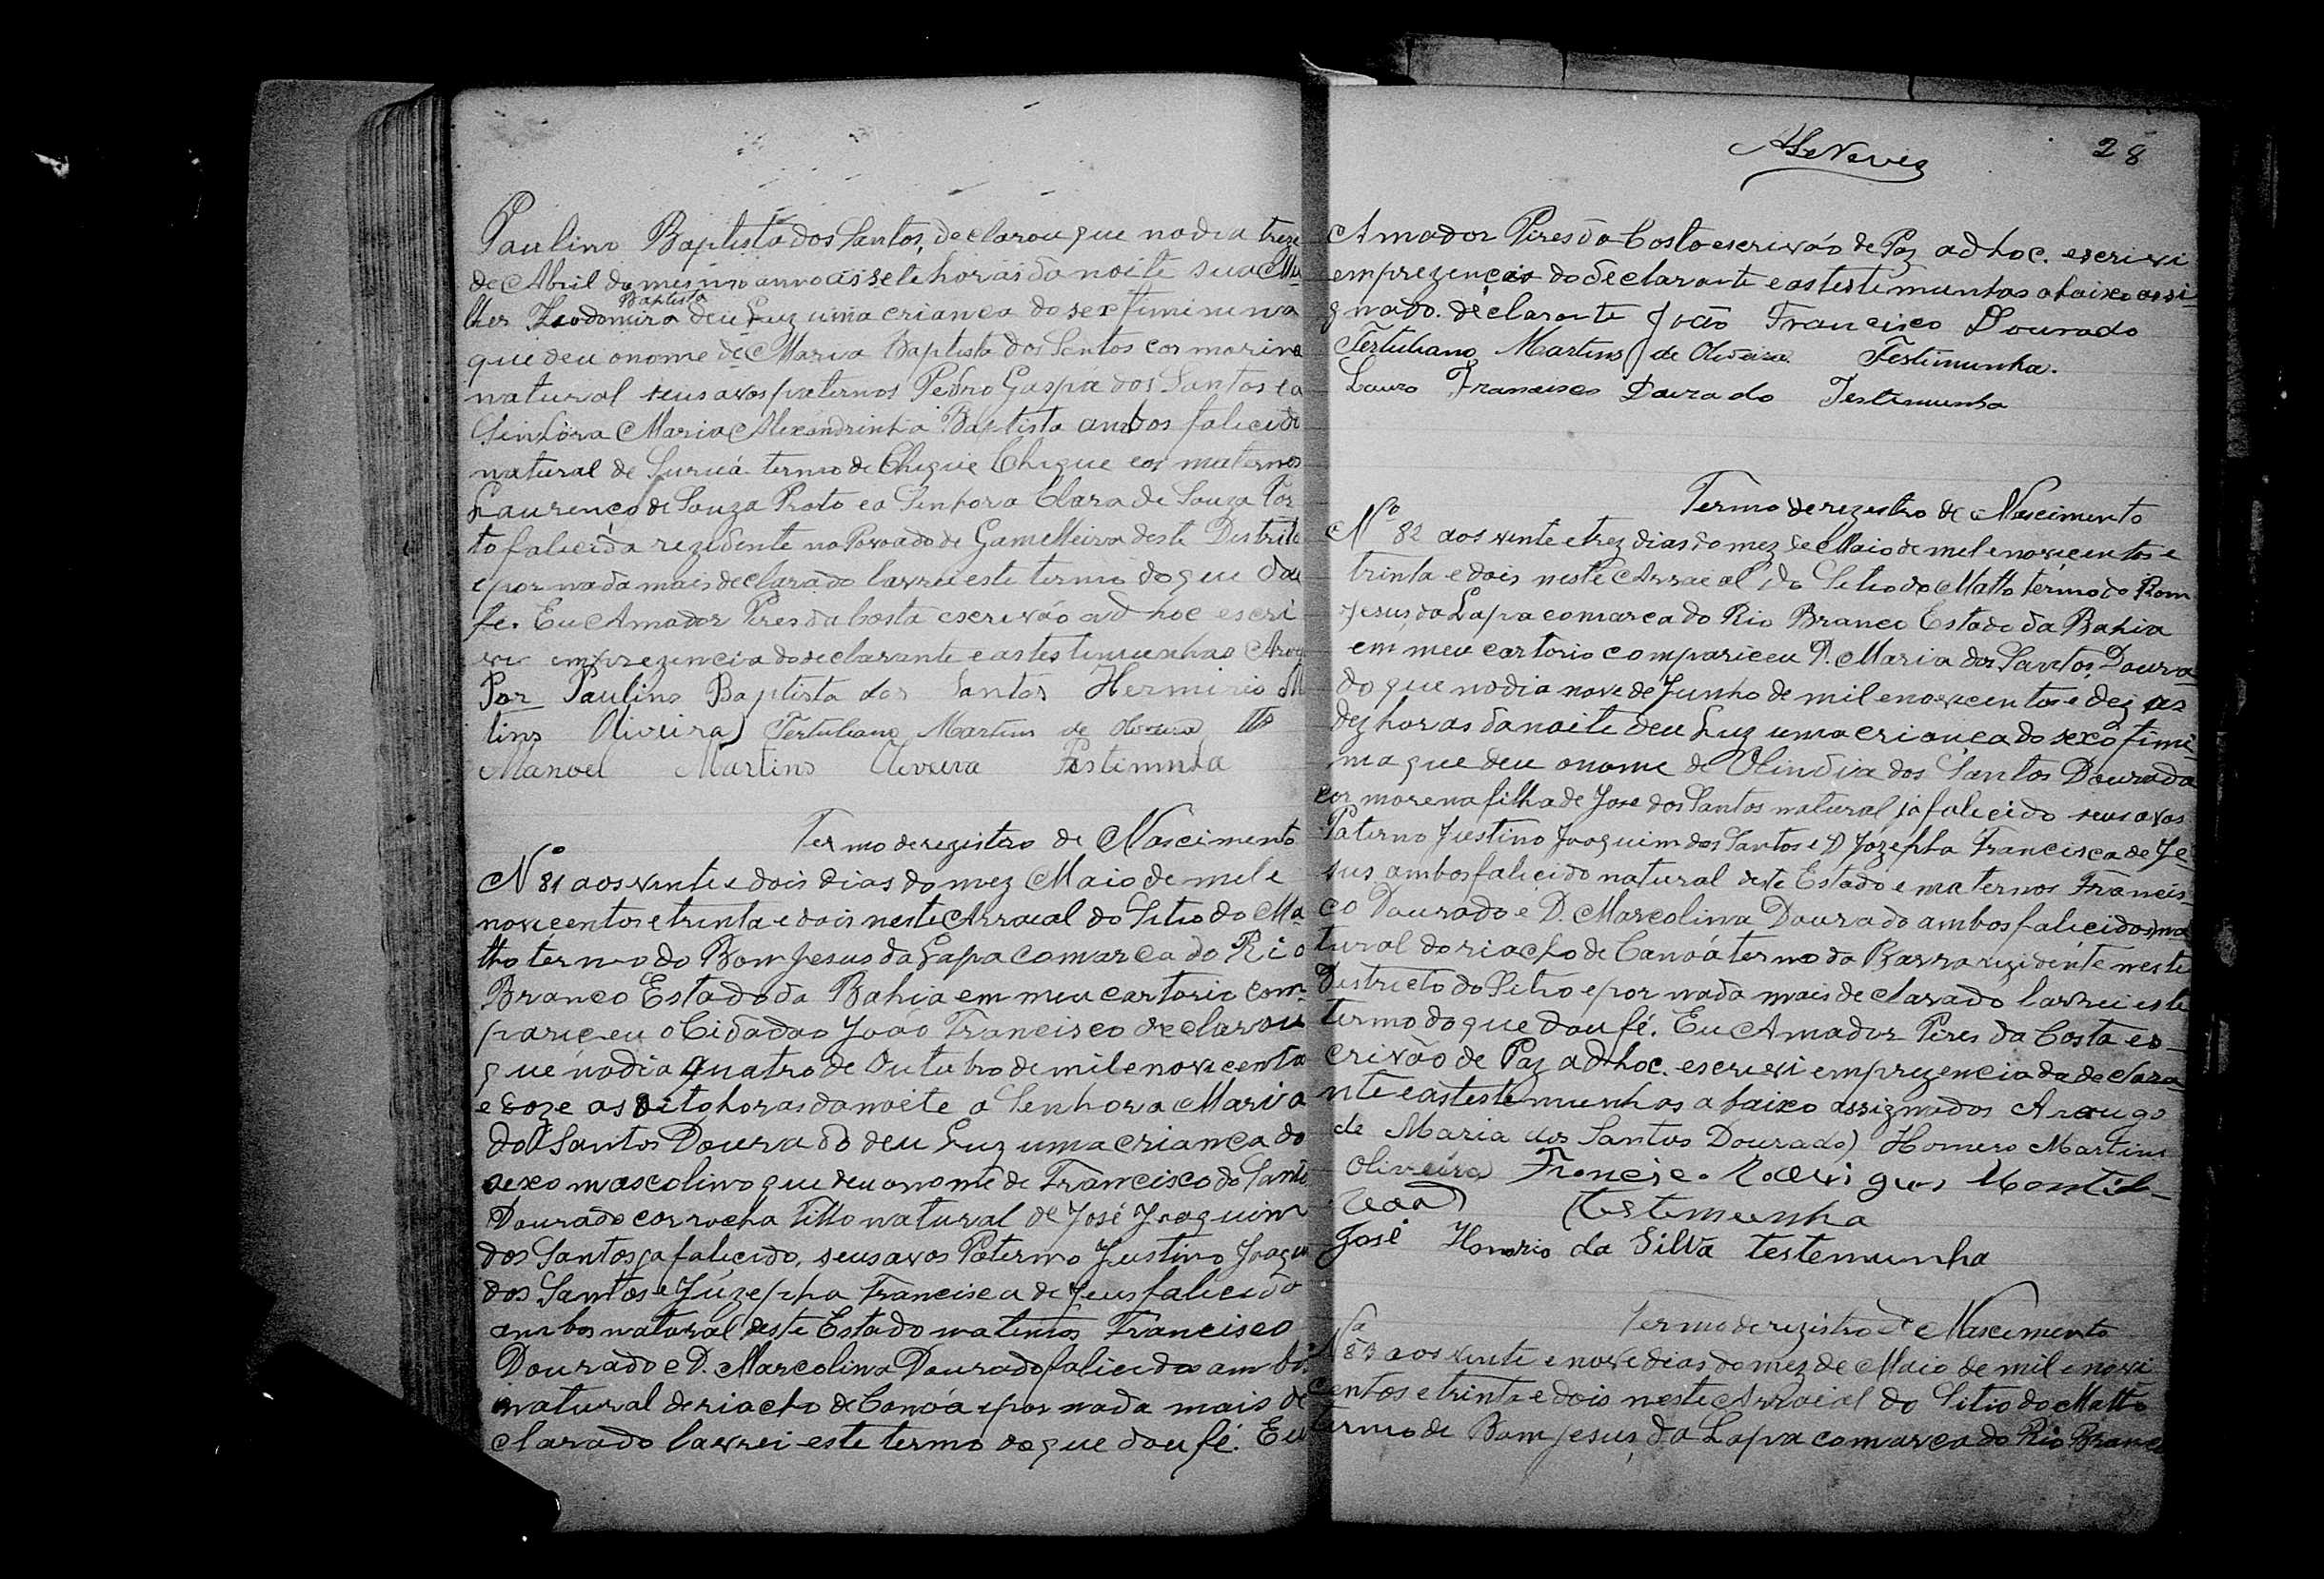 Paulino Baptista dos Santos, declarou que no dia treze
de Abril do mesmo anno as sete horas da noite sua Mu-
lher Theodomira Baptista deu Luz uma crianca do sex fiminina
que deu o nome de Maria Baptista dos Santos cor morina
natural seus avos paternos Pedro Gaspá dos Santos e a
Sinhora Maria Alexandrinha Baptista ambos falicido
natural de Suruá termo de Chique Chique e os maternos
Laurenço de Souza Proto e a Senhora Clara de Souza Por
to falicida rezidente no Povoado de Gamelleira deste Distrito
e por nada mais declarado lavrei este termo do que dou
fé. Eu Amador Pires da Costa escrivão ad hoc escri
vi em prezencia do declarante e as testimunhas Arogo
Por Paulino Baptista dos Santos Hermirio M
tins Oliveira Tertuliano Martins de Oliveira
Manoel Martins Oliveira Testimunha
Termo de registro de Nascimento
Nº 81 aos vinte e dois dias do mez Maio de mil e
novicentos e trinta e dois neste Arraial do Sitio do Ma-
tto termo do Bom Jesus da Lapa comarca do Rio
Branco Estado da Bahia em meu cartorio com-
pariceu o Cidadao João Francisco declarou
que no dia quatro de Outubro de mil e novicento
e doze as oito horas da noite a Senhora Maria
dos Santos Dourado deu Luz uma crianca do
sexo mascolino que deu o nome de Francisco do Santo
Dourado cor rocha filho natural de José Joaquim
dos Santos ja falicido, seus avos Paterno Justino Joaqui
dos Santos e Júzepha Francisca de Jeus falicido
ambos natural deste Estado matenos Francisco
Dourado e D. Marcolina Dourado falicidos ambos
natural de riacho de Canôa e por nada mais de
clarado lavrei este termo do que dou fé. Eu
ASNeves 28
Amador Pires da Costa escrivão de Paz ad hoc. escrevi
em prezença do declarante e as testimunhas abaixo assi
gnado. declarante João Francisco Dourado
Tertuliano Martins de Oliveira Testimunha.
Lauro Francisco Dourado Testimunha
Termo de rezistro de Nascimento
Nº 82 aos vinte e trez dias do mez de Maio de mil e novicentos e
trinta e dois neste Arraeal do Sitio do Matto termo do Bom
Jesus da Lapa comarca do Rio Branco Estado da Bahia
em meu cartorio compariceu D. Maria dos Santos Doura-
do que no dia nove de Junho de mil e novicentos e dez as
dez horas da noite deu Luz uma criança do sexo fimi-
ma que deu o nome de Olindia dos Santos Dourado
cor morena filha de Jose dos Santos natural ja falicido seus avos
Paterno Justino Joaquim dos Santos e D Jozepha Francisca de Je-
sus ambos falicido natural deste Estado e maternos Francis-
co Dourado e D. Marcolina Dourado ambos falicidos na
tural do riacho de Canôa termo da Barra rezidente neste
Districto do Sitio e por nada mais declarado lavrei este
termo do que dou fé. Eu Amador Pires da Costa es-
crivão de Paz ad hoc. escrevi em prezencia da declara-
nte e as testemunhas abaixo assignados Arougo
de Maria dos Santos Dourado) Homero Martins
Oliveira Francisco Rodrigues
Testemunha
José Honorio da Silva testemunha
Termo de rezistro de Nascimento
Nº 83 aos vinte e nove dias do mez de Maio de mil e novi
centos e trinta e dois neste Arraial do Sitio do Matto
termo de Bom Jesus da Lapa comarca do Rio Branco